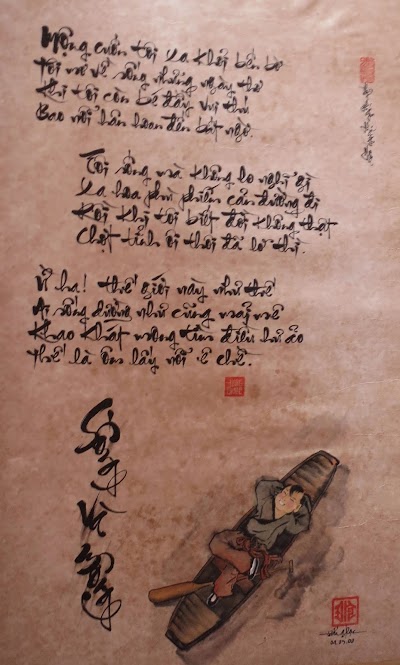 Mộng cuốn tôi xa khỏi bến bờ
Tôi mơ về sống những ngày thơ
Khi tôi còn bé đầy vui thú
Bao nỗi hân hoan đến bất ngờ.
Tôi sống mà không lo nghĩ gì
Xa hoa phù phiếm cản đường đi
Rồi khi tôi biết đời không thật
Chợt tỉnh ôi thôi đã lỡ thì.
Ừ hả! thế giới này như thế
Ai sống dường như cũng mải mê
Khao khát mong tìm điều hư ảo
Thế là ôm lấy nỗi ê chề.